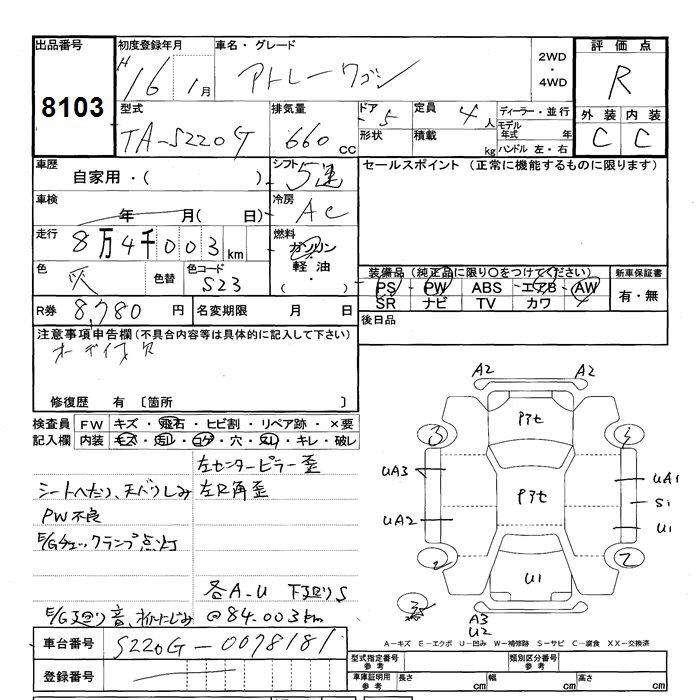 出品番号 初度登録年月 車名・グレード 2WD・4WD 評価点
8103 H16年1月 アトレーワゴン R
型式 排気量 ドア 5 定員 4人 ディーラー・並行 外装 内装
TA-S220G 660cc 形状 積載 kg モデル年式 年 ハンドル 左・右 C C
車歴 自家用・( ) シフト 5速 セールスポイント (正常に機能するものに限ります)
車検 年 月( 日) 冷房 AC
走行 8万4千003km 燃料 ガソリン・軽油・( )
色 灰 色替 色コード S23 装備品 (純正品に限り○をつけてください) 新車保証書
PS PW ABS エアB AW 有・無
SR ナビ TV カワ
R券 8,780円 名変期限 月 日 後日品
注意事項申告欄 (不具合内容等は具体的に記入して下さい)
オーディオ欠
修復歴 有 〔箇所 〕
検査員 FW キズ・飛石・ヒビ割・リペア跡・×要
記入欄 内装 キズ・汚レ・コゲ・穴・スレ・キレ・破レ
左センターピラー歪
シートへたり、天バリしみ 左R角歪
PW不良
E/Gチェックランプ点灯
各A-U 下廻りS
E/G廻り音、オイルにじみ @84.003km
A2 A2
アt
3 3
UA3 UA1
アt S1
UA2 U1
2 2
U1
A3
U2
A-キズ E-エクボ U-凹み W-補修跡 S-サビ C-腐食 XX-交換済
車台番号 S220G-0078181
型式指定番号 参考 類別区分番号 参考
登録番号
車庫証明用 参考 長さ cm 幅 cm 高さ cm